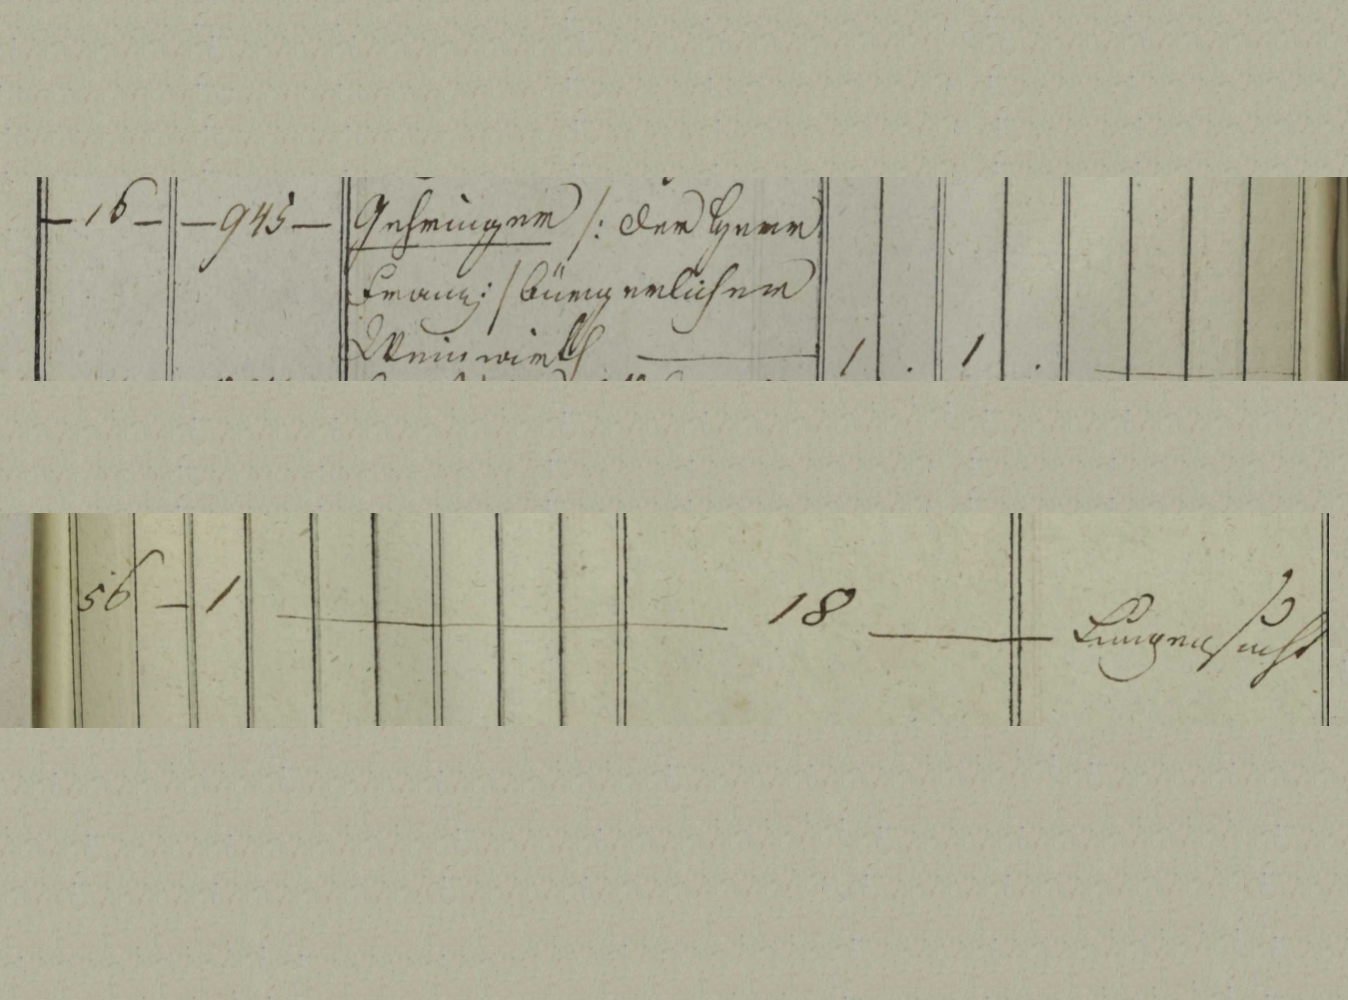 — 16 — — 945 — Gehringer /: der Herr
Franz :/ bürgerlicher
Weinwirth — 1 . 1 . —
56 — 1 — 18 — Lungensucht